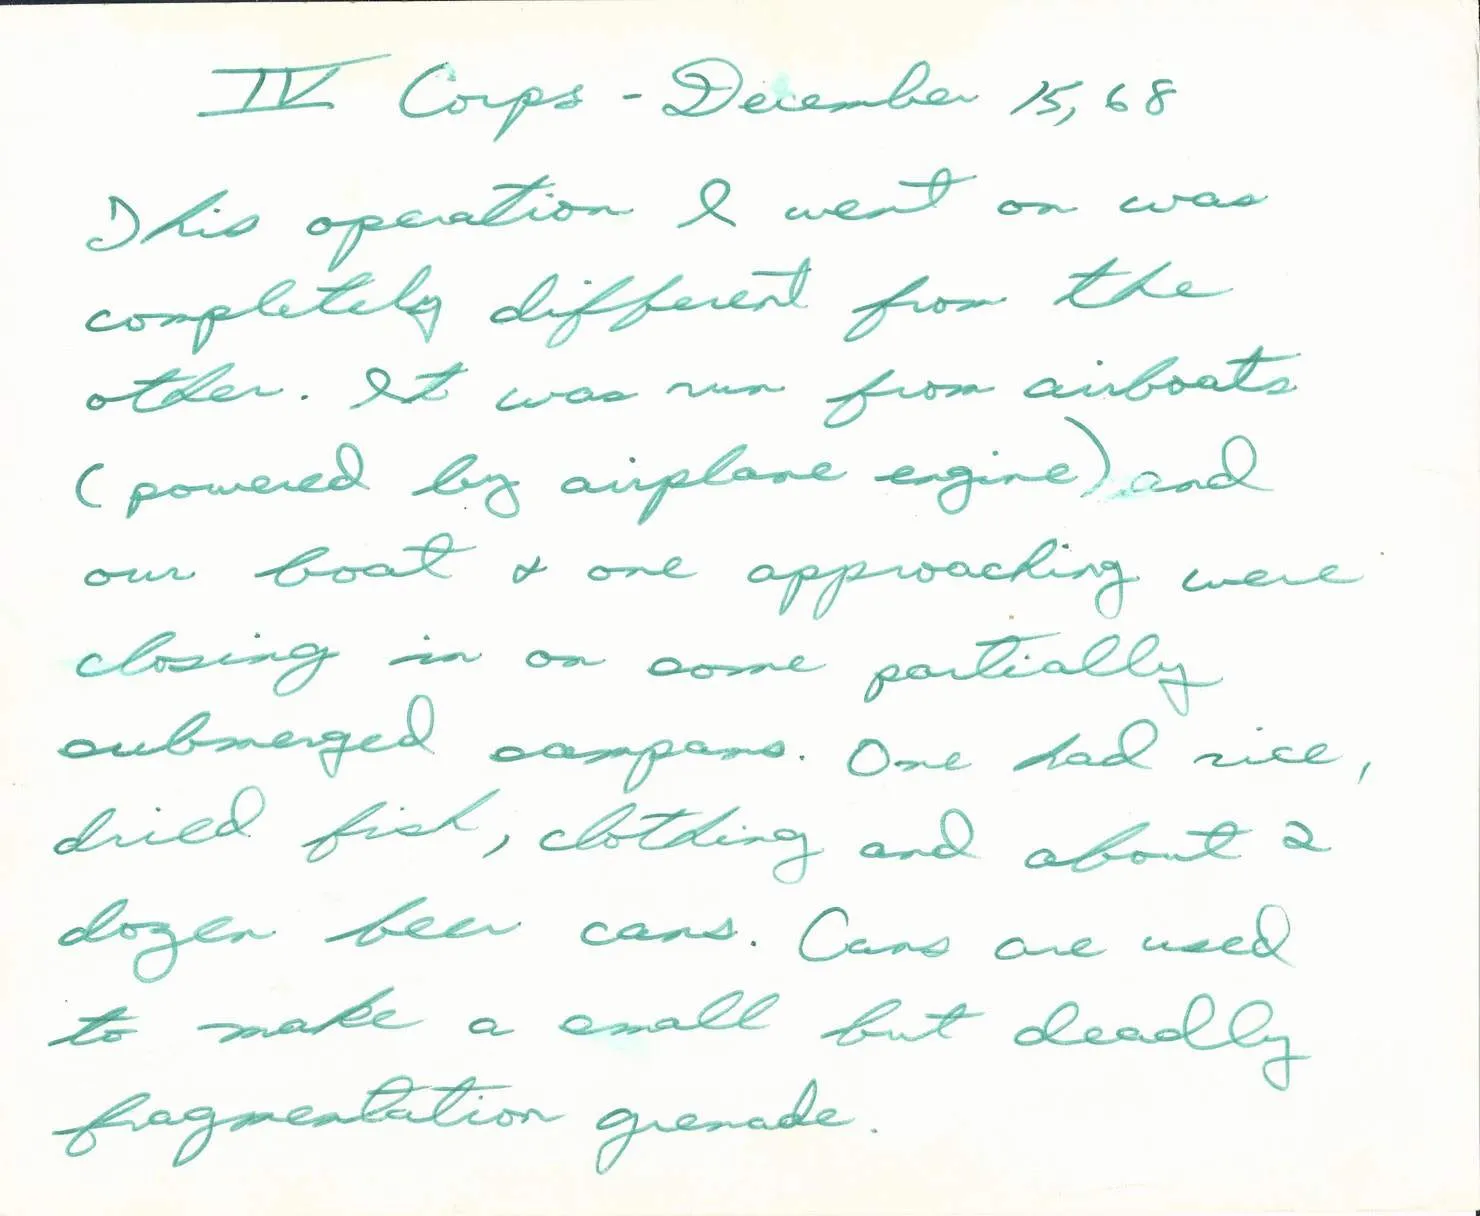 IV Corps - December 15, 68
This operation I went on was
completely different from the
other. It was run from airboats
(powered by airplane engine) and
our boat & one approaching were
closing in on some partially
submerged sampans. One had rice,
dried fish, clothing and about 2
dozen beer cans. Cans are used
to make a small but deadly
fragmentation grenade.